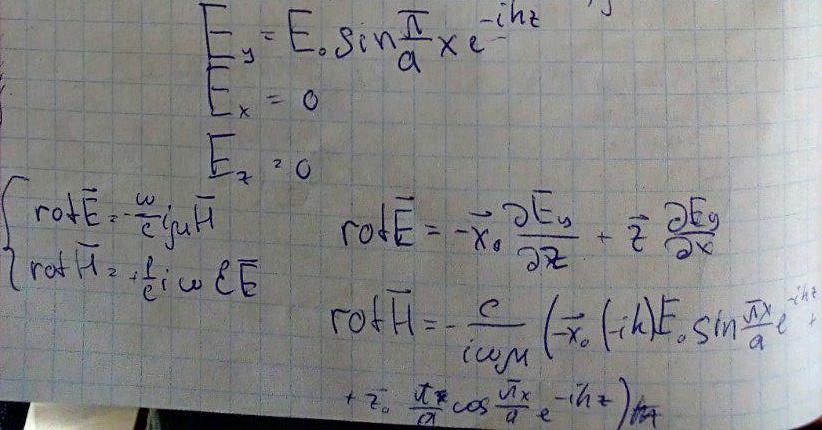 E_y = E_0 sin π/a x e^{-ihz}
E_x = 0
E_z = 0
rot Ē = -ω/c iμ H̄
rot H̄ = 1/c iω ε Ē
rot Ē = -x⃗_0 ∂E_y/∂z + z⃗ ∂E_y/∂x
rot H̄ = - c/iωμ (-x⃗_0 (-ih) E_0 sin πx/a e^{-ihz} +
+ z⃗_0 π/a cos πx/a e^{-ihz})